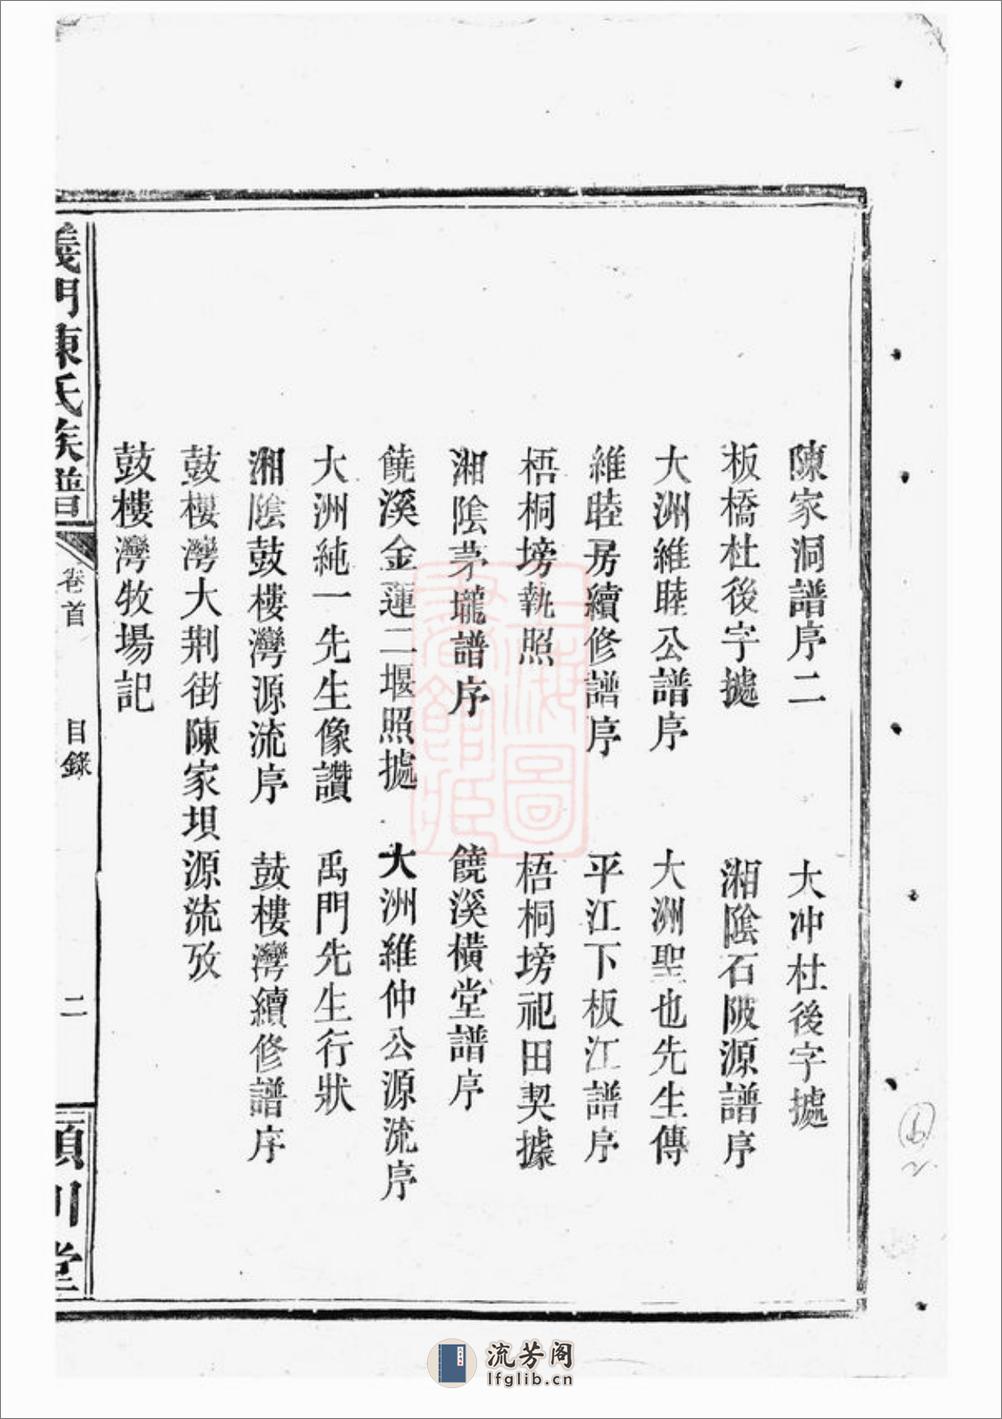 陳家洞譜序二　大冲杜後字𢴃
板橋杜後字𢴃　湘陰石陂源譜序
大洲維睦公譜序　大洲聖也先生傳
維睦房續修譜序　平江下板江譜序
梧桐塝執照　梧桐塝祀田契據
湘陰茅壠譜序　饒溪橫堂譜序
饒溪金蓮二堰照𢴃　大洲維仲公源流序
大洲純一先生像讚　禹門先生行狀
湘陰鼓樓灣源流序　鼓樓灣續修譜序
鼓樓灣大荆街陳家垻源流攷
鼓樓灣牧場記
義門陳氏族譜
卷首
目錄
二
頴川堂
上海圖書館藏
流芳阁
lfglib.cn